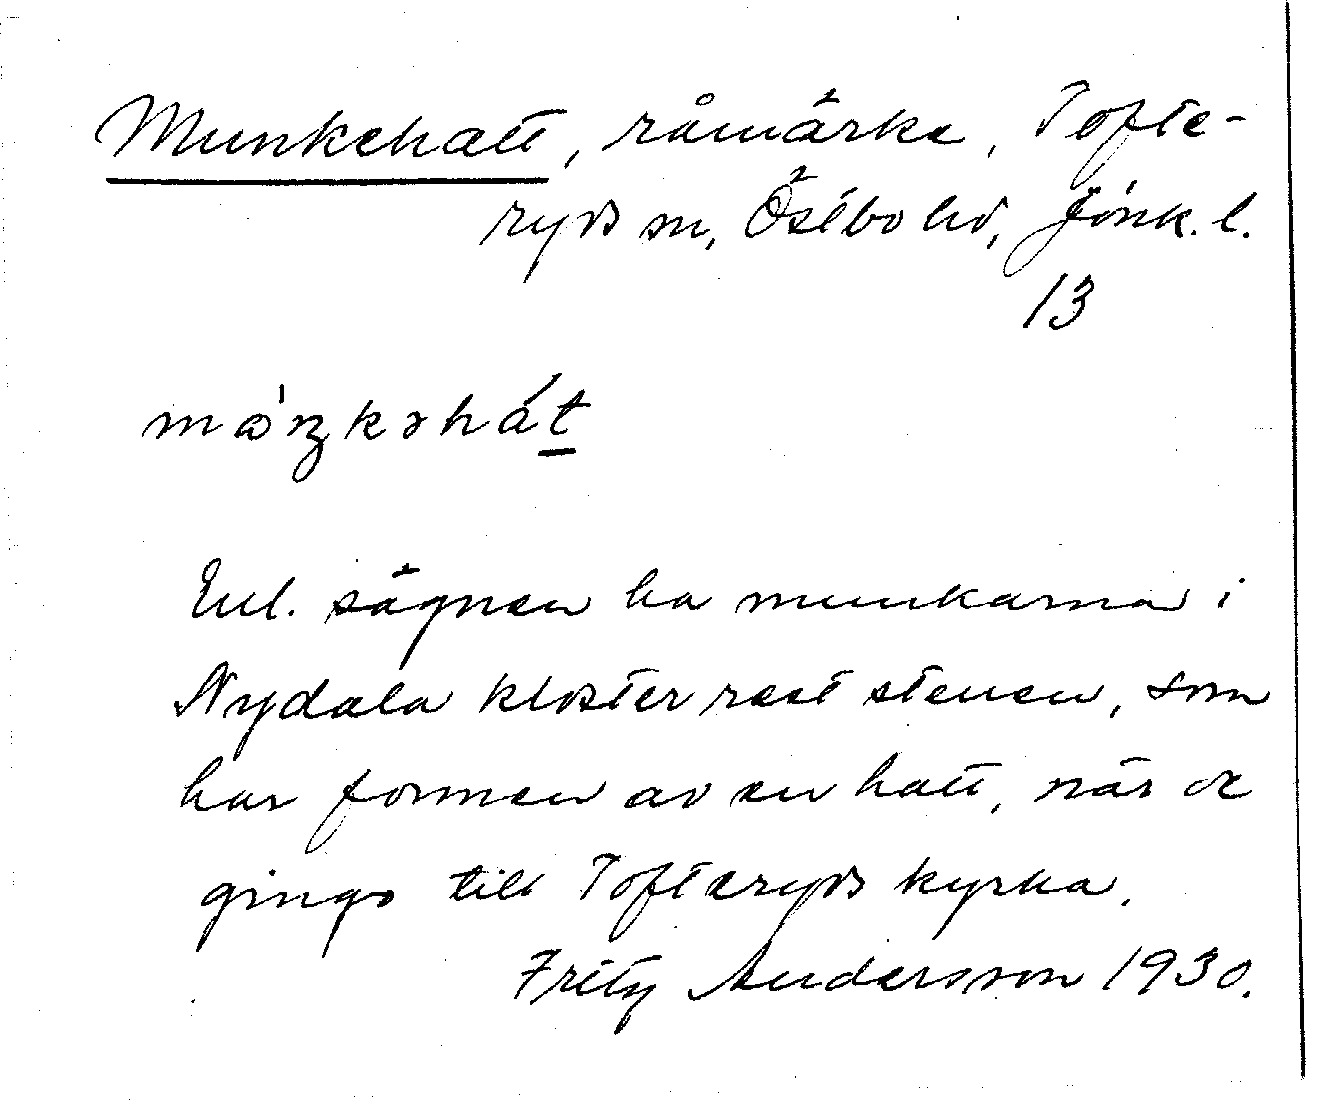 Munkehatt, råmärke, Tofte-
ryds sn, Östbo hd, Jönk. l.
13
Enl. sägnen ha munkarna i
Nydala kloster rest stenen, som
har formen av en hatt, när de
gingo till Tofteryds kyrka.
Fritz Andersson 1930.